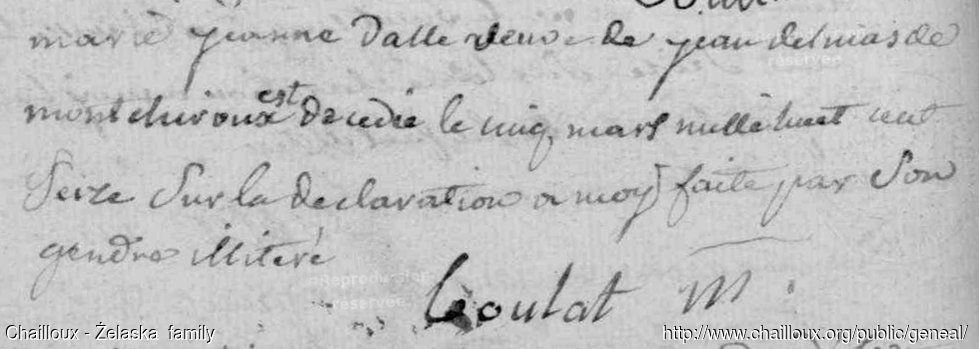 marie jeanne dalle veuve de jean delmas de
montchiroux est decedée le cinq mars mille huit cent
seize sur la declaration a moy faite par son
gendre illiteré
Coulat m.
Reproduction
réservée
réservée
Chailloux - Želaska family
http://www.chailloux.org/public/geneal/